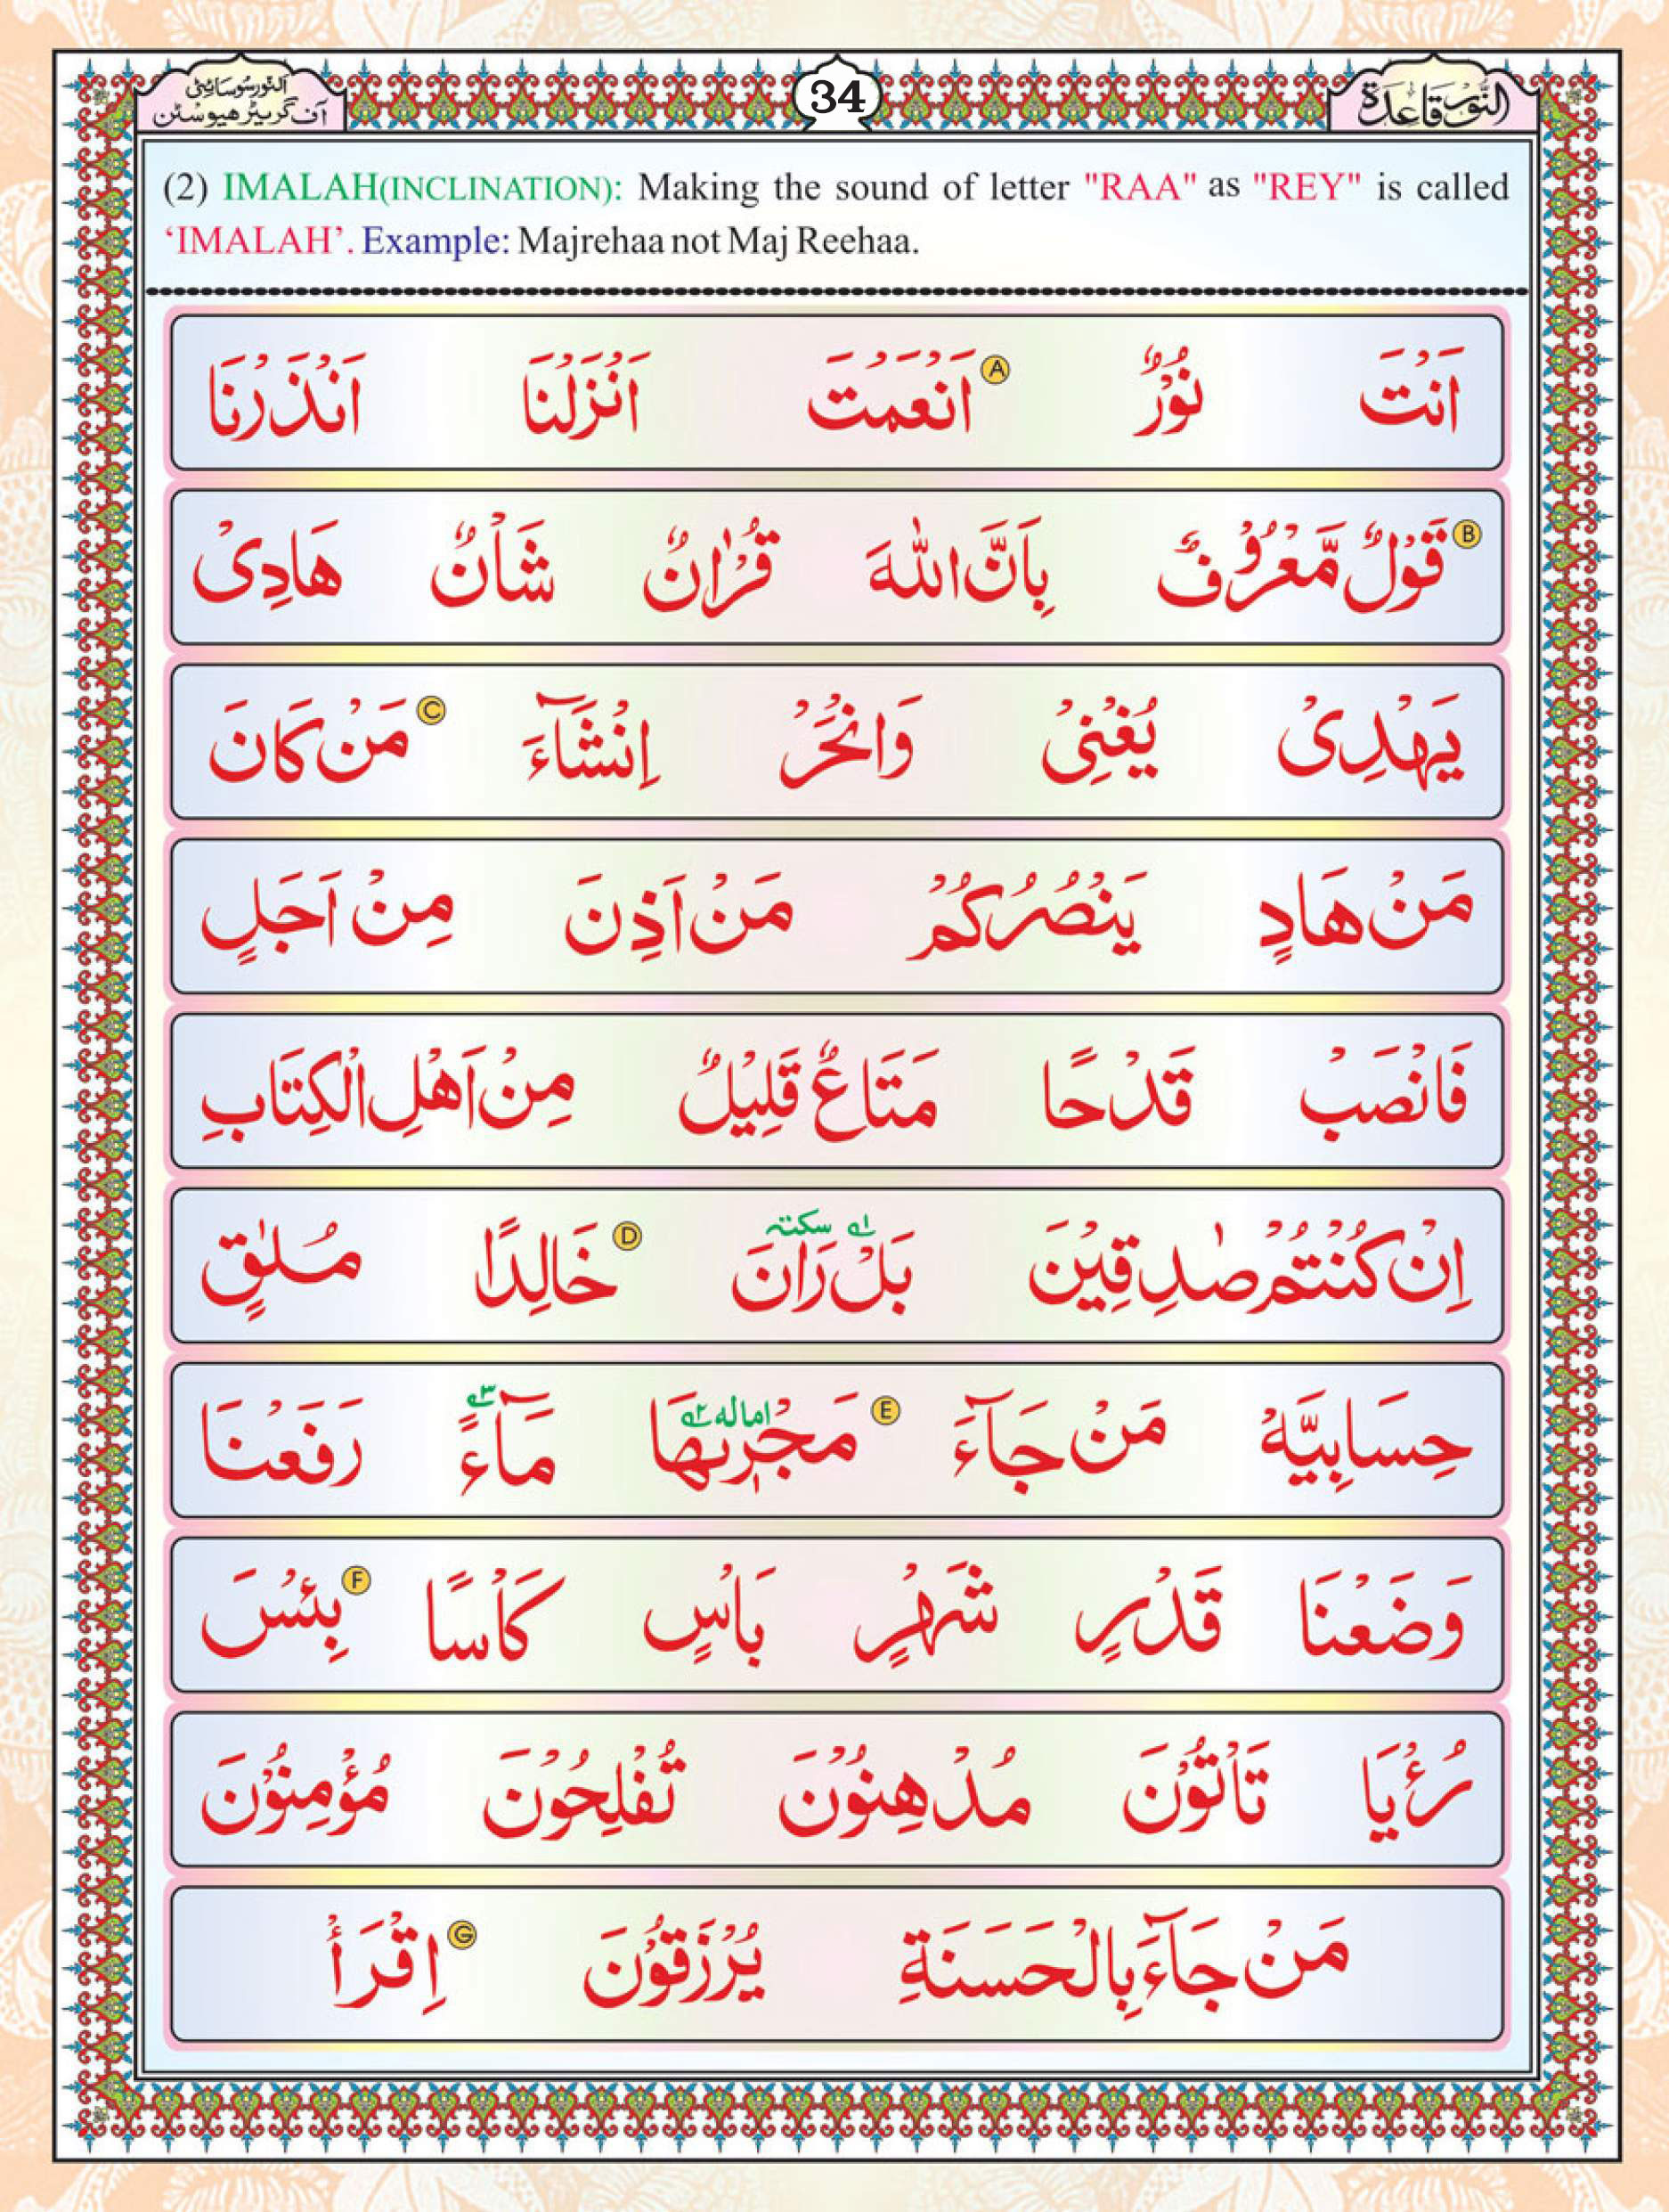 النُّوْر قَاعِدَة
34
النّور سُوسَائِٹی
آف گریٹر ھیوسٹن
(2) IMALAH(INCLINATION): Making the sound of letter "RAA" as "REY" is called
‘IMALAH’. Example: Majrehaa not Maj Reehaa.
اَنْتَ نُوْرٌ A اَنْعَمْتَ اَنْزَلْنَا اَنْذَرْنَا
B قَوْلٌ مَّعْرُوْفٌ بِاَنَّ اللّٰهَ قُرْاٰنٌ شَاْنٌ هَادِیْ
يَهْدِیْ يُغْنِیْ وَانْحَرْ اِنْشَآءَ C مَنْ كَانَ
مَنْ هَادٍ يَنْصُرْكُمْ مَنْ اَذِنَ مِنْ اَجَلٍ
فَانْصَبْ قَدْحًا مَتَاعٌ قَلِيْلٌ مِنْ اَهْلِ الْكِتَابِ
اِنْ كُنْتُمْ صٰدِقِيْنَ بَلْ رَانَ سكتہ ١ D خَالِدًا مُلٰقٍ
حِسَابِيَّهْ مَنْ جَآءَ E مَجْرٖىهَا امالہ ٢ مَآءً ٣ رَفَعْنَا
وَضَعْنَا قَدْرٍ شَهْرٍ بَاْسٍ كَاْسًا F بِئْسَ
رُءْيَا تَاْتُوْنَ مُدْهِنُوْنَ تُفْلِحُوْنَ مُؤْمِنُوْنَ
مَنْ جَآءَ بِالْحَسَنَةِ يُرْزَقُوْنَ G اِقْرَاْ